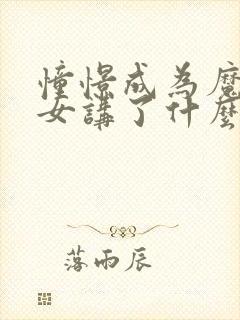 憧憬成為魔
女講了什麼
落雨辰